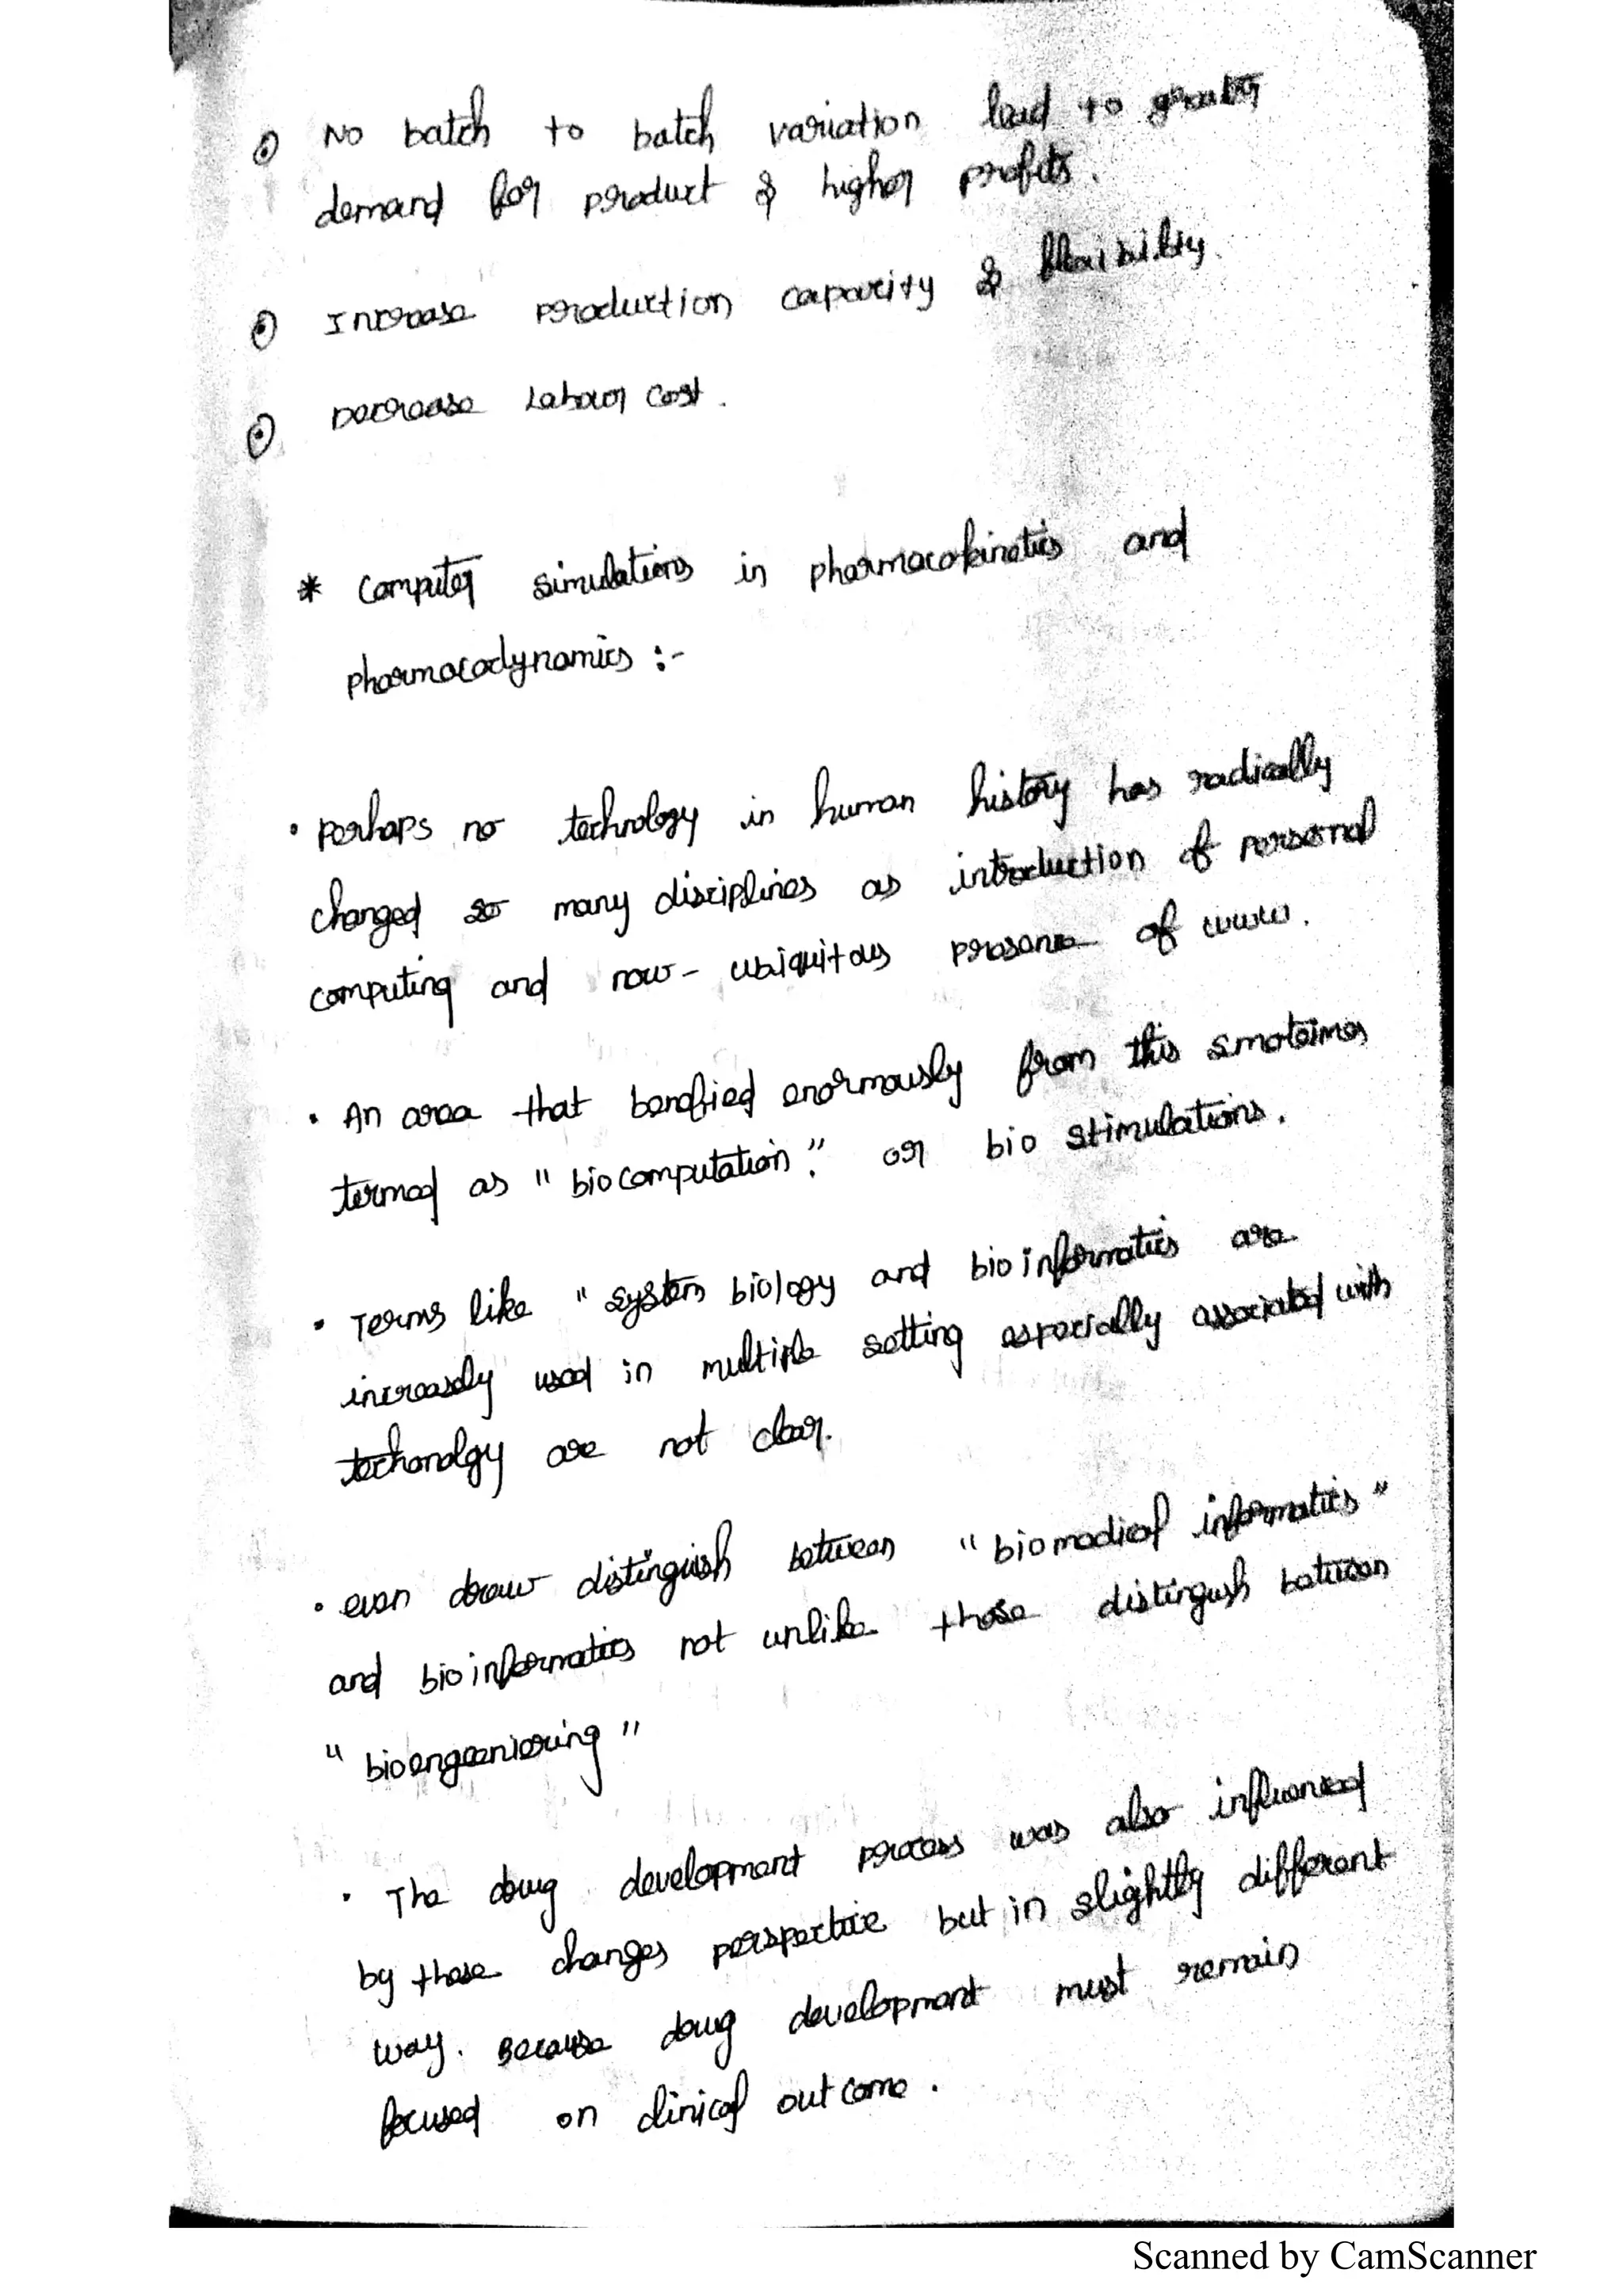 ⊙ No batch to batch variation lead to greater
demand for product & higher profits.
⊙ Increase production capacity & flexibility.
⊙ Decrease Labour cost.
* Computer simulations in pharmacokinetics and
pharmacodynamics :-
• Perhaps no technology in human history has radically
changed so many disciplines as introduction of personal
computing and now - ubiquitous presence of www.
• An area that benefied enormously from this smoteimes
termed as "biocomputation." or bio stimulations.
• Terms like "system biology and bioinformatics are
increasely used in multiple setting especially associated with
techonolgy are not clear.
• even draw distinguish between "biomedical informatics"
and bioinformatics not unlike those distingush between
"bioengeeniering"
• The drug development process was also influenced
by these changes perspective but in slightly different
way. Because drug development must remain
focused on clinical outcome.
Scanned by CamScanner